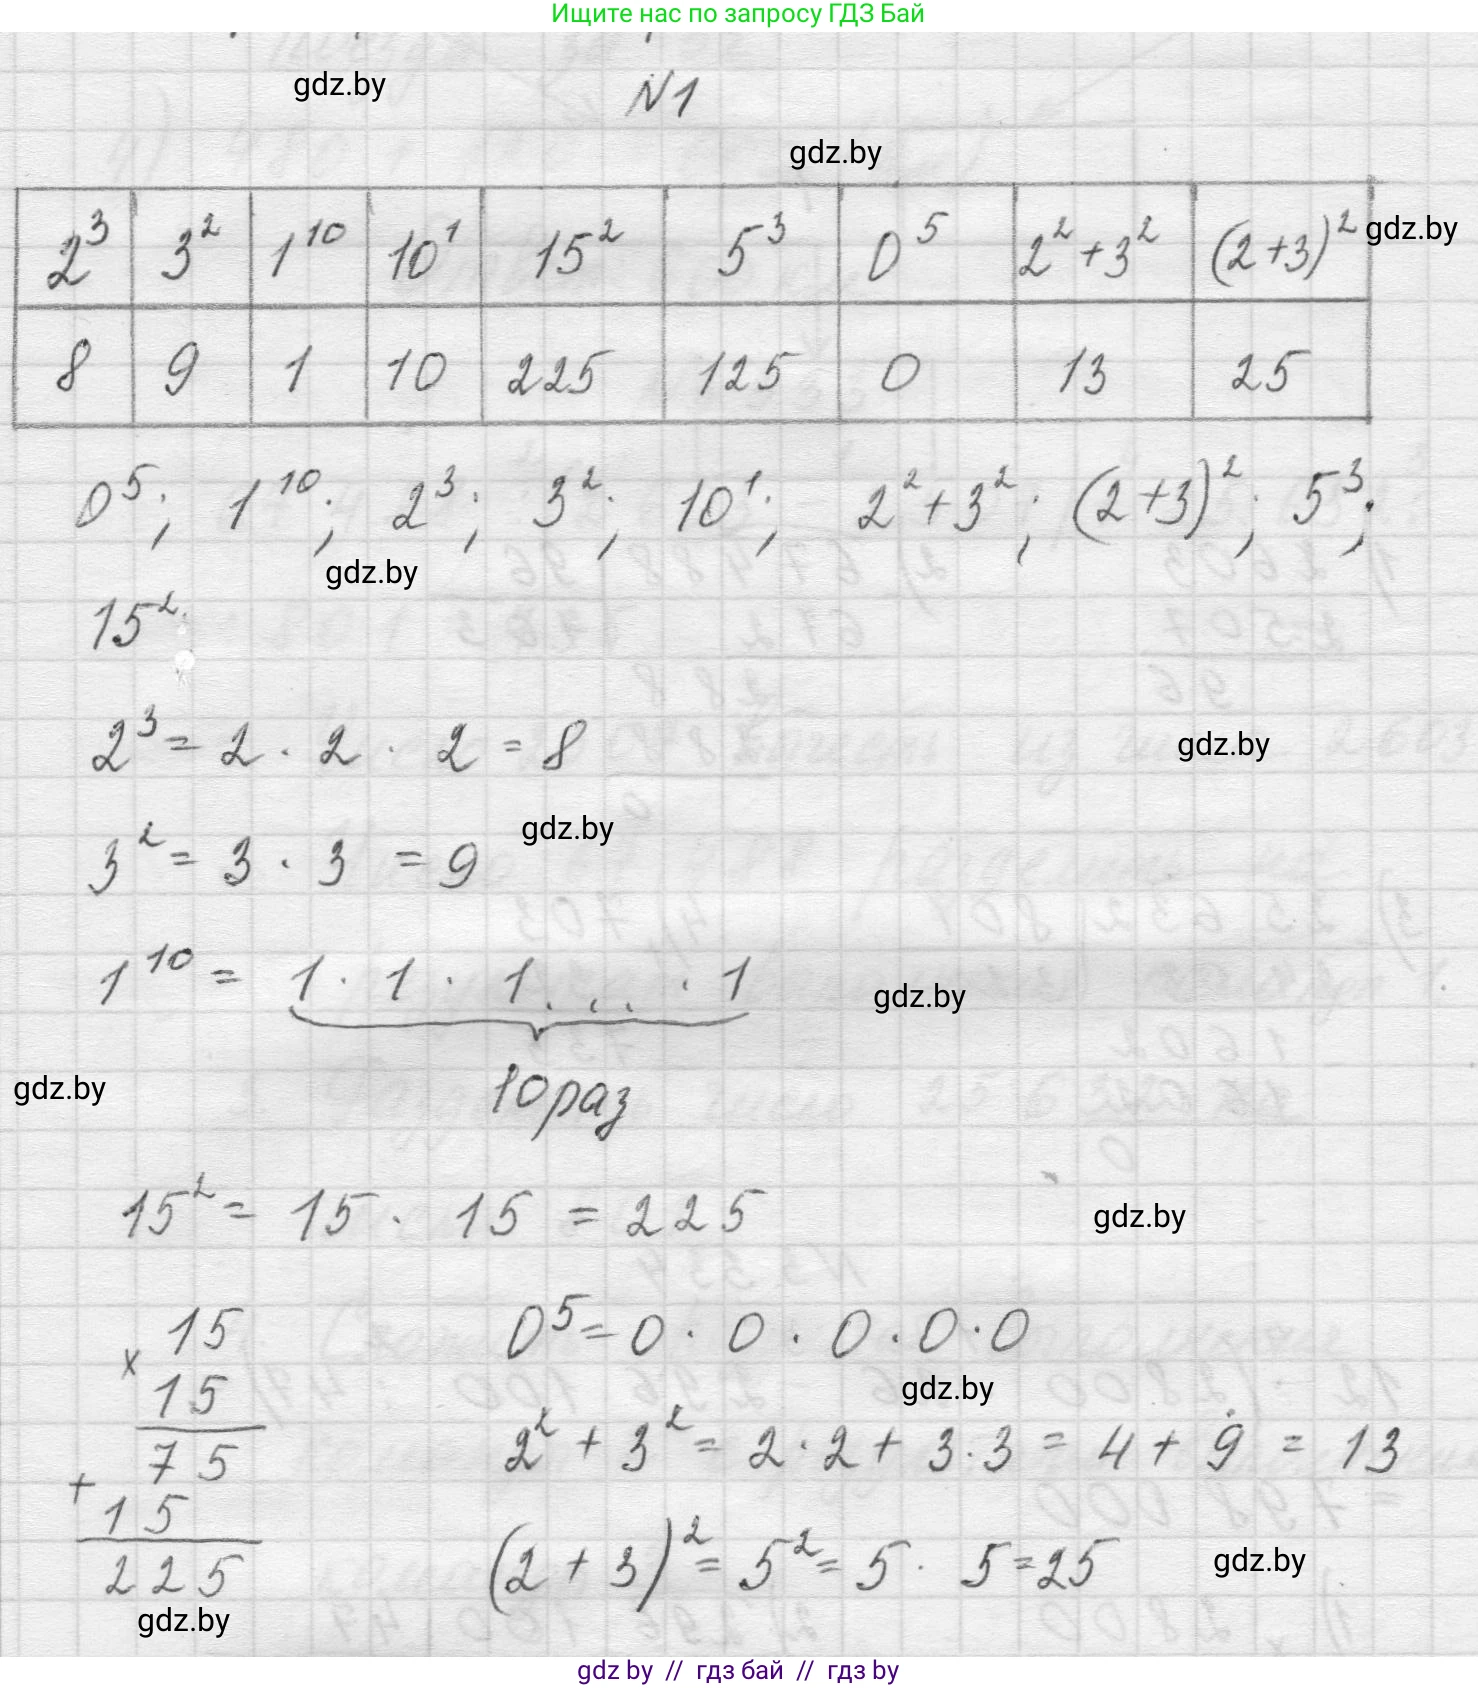 Ищите нас по запросу ГДЗ Бай
gdz.by
N1
gdz.by
2³ 3² 1¹⁰ 10¹ 15² 5³ 0⁵ 2²+3² (2+3)² gdz.by
8 9 1 10 225 125 0 13 25
0⁵; 1¹⁰; 2³; 3²; 10¹; 2²+3²; (2+3)²; 5³;
gdz.by
15²
2³ = 2 · 2 · 2 = 8
gdz.by
gdz.by
3² = 3 · 3 = 9
1¹⁰ = 1 · 1 · 1 . . . · 1
gdz.by
10 раз
gdz.by
15² = 15 · 15 = 225
gdz.by
x 15
15
75
+ 15
225
0⁵ = 0 · 0 · 0 · 0 · 0
gdz.by
2² + 3² = 2 · 2 + 3 · 3 = 4 + 9 = 13
(2 + 3)² = 5² = 5 · 5 = 25
gdz.by
gdz.by
gdz by // гдз бай // гдз by